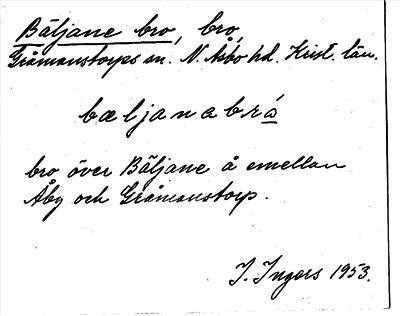 Bäljane bro, bro,
Gråmanstorps sn. N. Åsbo hd. Krist. län.
bæljanabrá
bro över Bäljane å emellan
Åby och Gråmanstorp.
I. Ingers 1953.